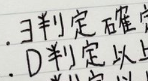 ・ヨ判定 確定
・D判定 以上